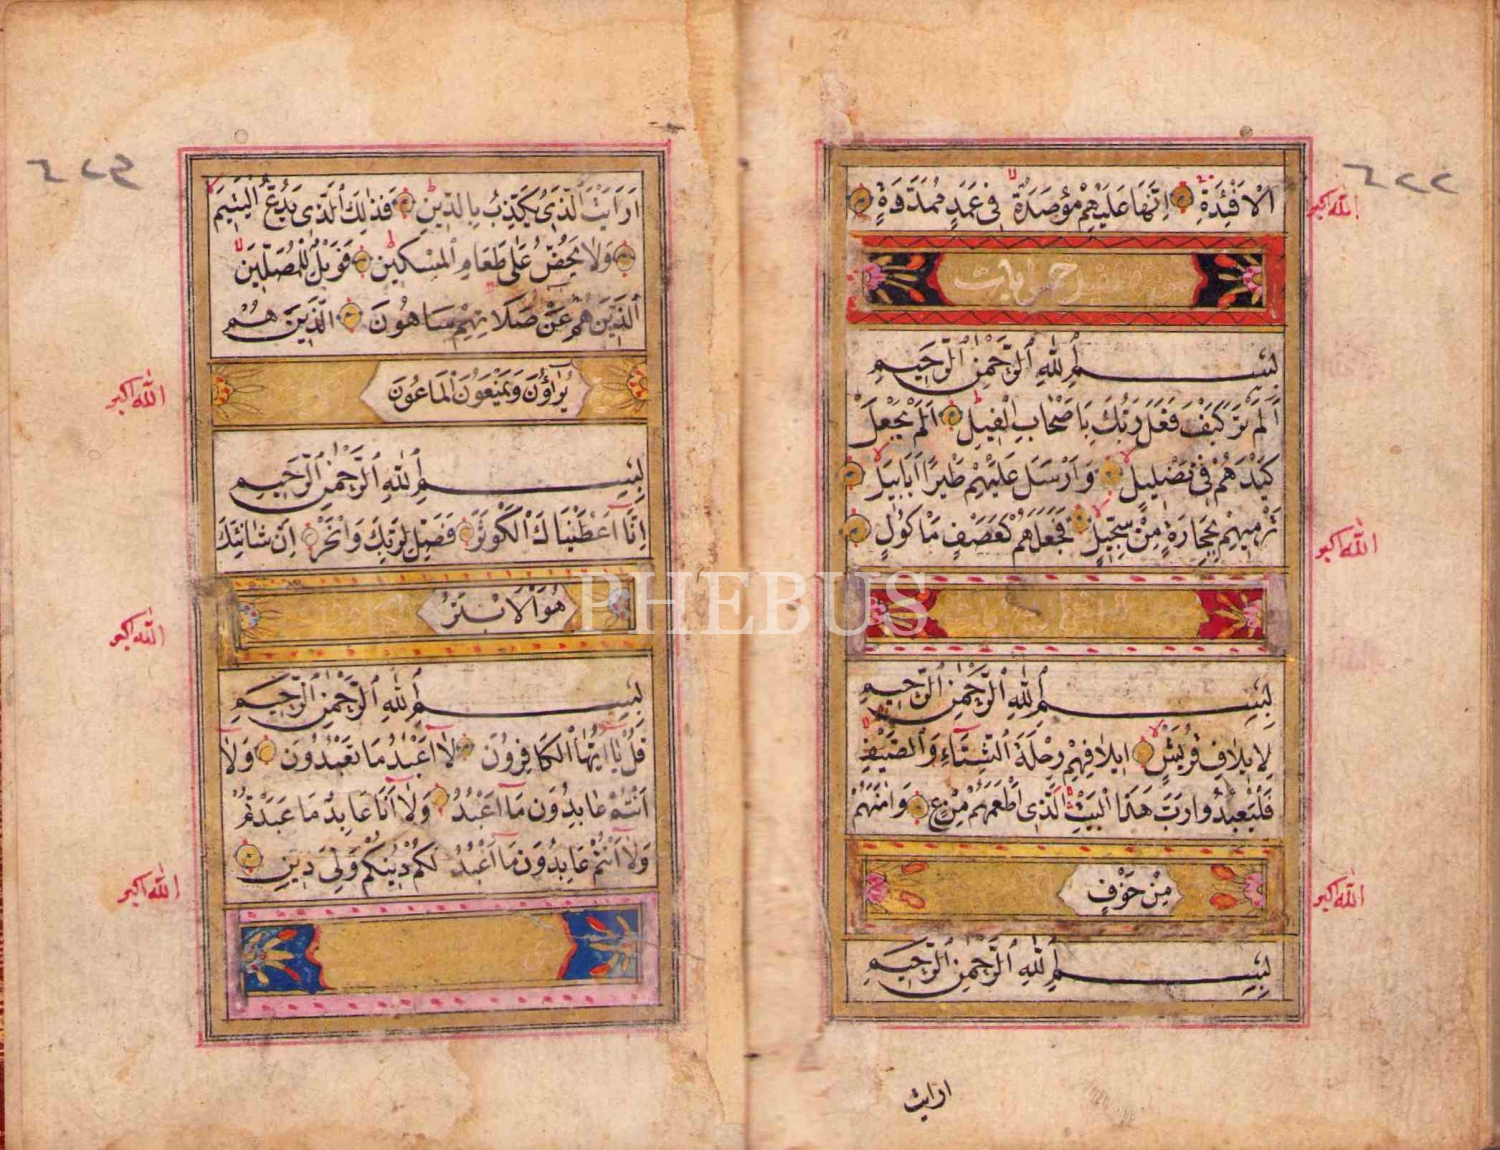 الْاَفْئِدَةِ اِنَّهَا عَلَيْهِمْ مُؤْصَدَةٌ فِى عَمَدٍ مُمَدَّدَةٍ
الله اكبر
سورة الفيل خمس ايات
بِسْمِ اللهِ الرَّحْمٰنِ الرَّحِيمِ
اَلَمْ تَرَ كَيْفَ فَعَلَ رَبُّكَ بِاَصْحَابِ الْفِيلِ اَلَمْ يَجْعَلْ
كَيْدَهُمْ فِى تَضْلِيلٍ وَاَرْسَلَ عَلَيْهِمْ طَيْرًا اَبَابِيلَ
تَرْمِيهِمْ بِحِجَارَةٍ مِنْ سِجِّيلٍ فَجَعَلَهُمْ كَعَصْفٍ مَاْكُولٍ
الله اكبر
بِسْمِ اللهِ الرَّحْمٰنِ الرَّحِيمِ
لِاِيلَافِ قُرَيْشٍ اِيلَافِهِمْ رِحْلَةَ الشِّتَاءِ وَالصَّيْفِ
فَلْيَعْبُدُوا رَبَّ هٰذَا الْبَيْتِ الَّذِى اَطْعَمَهُمْ مِنْ وَاٰمَنَهُمْ
مِنْ خَوْفٍ
الله اكبر
بِسْمِ اللهِ الرَّحْمٰنِ الرَّحِيمِ
ارايت
اَرَاَيْتَ الَّذِى يُكَذِّبُ بِالدِّينِ فَذٰلِكَ الَّذِى يَدُعُّ الْيَتِيمَ
وَلَا يَحُضُّ عَلٰى طَعَامِ الْمِسْكِينِ فَوَيْلٌ لِلْمُصَلِّينَ
اَلَّذِينَ هُمْ عَنْ صَلَاتِهِمْ سَاهُونَ الَّذِينَ هُمْ
يُرَاؤُنَ وَيَمْنَعُونَ الْمَاعُونَ
الله اكبر
بِسْمِ اللهِ الرَّحْمٰنِ الرَّحِيمِ
اِنَّا اَعْطَيْنَاكَ الْكَوْثَرَ فَصَلِّ لِرَبِّكَ وَانْحَرْ اِنَّ شَانِئَكَ
هُوَ الْاَبْتَرُ
الله اكبر
بِسْمِ اللهِ الرَّحْمٰنِ الرَّحِيمِ
قُلْ يَا اَيُّهَا الْكَافِرُونَ لَا اَعْبُدُ مَا تَعْبُدُونَ وَلَا
اَنْتُمْ عَابِدُونَ مَا اَعْبُدُ وَلَا اَنَا عَابِدٌ مَا عَبَدْتُمْ
وَلَا اَنْتُمْ عَابِدُونَ مَا اَعْبُدُ لَكُمْ دِينُكُمْ وَلِىَ دِينِ
الله اكبر
PHEBUS